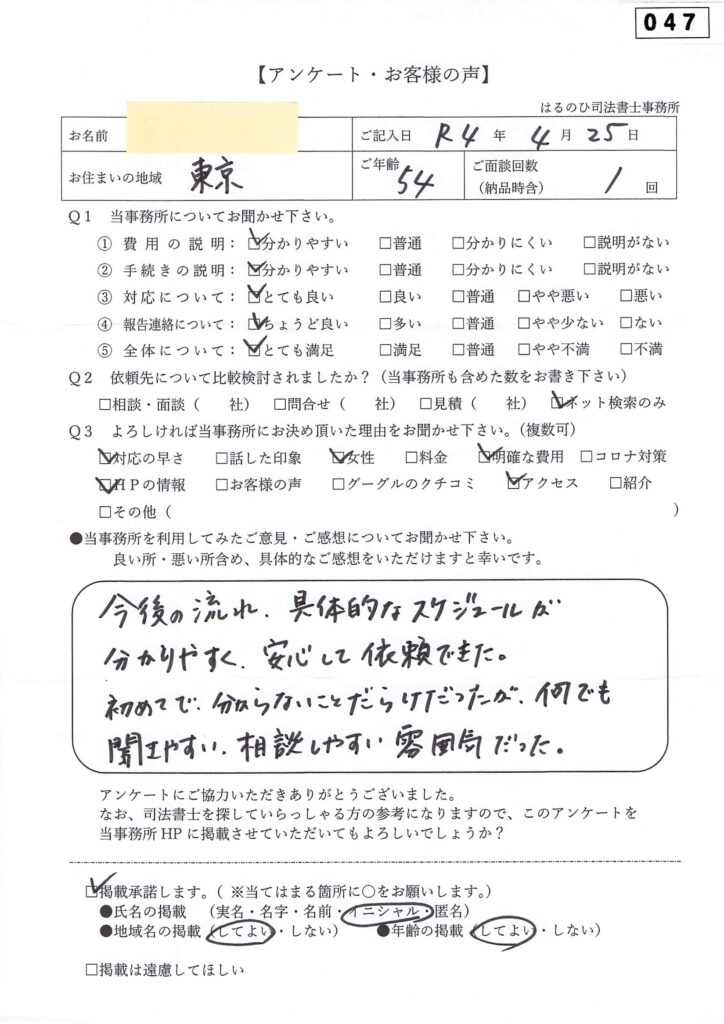 047
【アンケート・お客様の声】
はるのひ司法書士事務所
お名前 ご記入日 R4 年 4 月 25 日
お住まいの地域 東京 ご年齢 54 ご面談回数（納品時含） 1 回
Q1 当事務所についてお聞かせ下さい。
① 費用の説明： ☑分かりやすい □普通 □分かりにくい □説明がない
② 手続きの説明： ☑分かりやすい □普通 □分かりにくい □説明がない
③ 対応について： ☑とても良い □良い □普通 □やや悪い □悪い
④ 報告連絡について： ☑ちょうど良い □多い □普通 □やや少ない □ない
⑤ 全体について： ☑とても満足 □満足 □普通 □やや不満 □不満
Q2 依頼先について比較検討されましたか？（当事務所も含めた数をお書き下さい）
□相談・面談（ 社） □問合せ（ 社） □見積（ 社） ☑ネット検索のみ
Q3 よろしければ当事務所にお決め頂いた理由をお聞かせ下さい。（複数可）
☑対応の早さ □話した印象 ☑女性 □料金 ☑明確な費用 □コロナ対策
☑HPの情報 □お客様の声 □グーグルのクチコミ ☑アクセス □紹介
□その他（ ）
●当事務所を利用してみたご意見・ご感想についてお聞かせ下さい。
良い所・悪い所含め、具体的なご感想をいただけますと幸いです。
今後の流れ、具体的なスケジュールが
分かりやすく、安心して依頼できた。
初めてで、分からないことだらけだったが、何でも
聞きやすい、相談しやすい雰囲気だった。
アンケートにご協力いただきありがとうございました。
なお、司法書士を探していらっしゃる方の参考になりますので、このアンケートを
当事務所HPに掲載させていただいてもよろしいでしょうか？
☑掲載承諾します。（ ※当てはまる箇所に○をお願いします。）
●氏名の掲載 （実名・名字・名前・イニシャル・匿名）
●地域名の掲載（してよい・しない） ●年齢の掲載（してよい・しない）
□掲載は遠慮してほしい